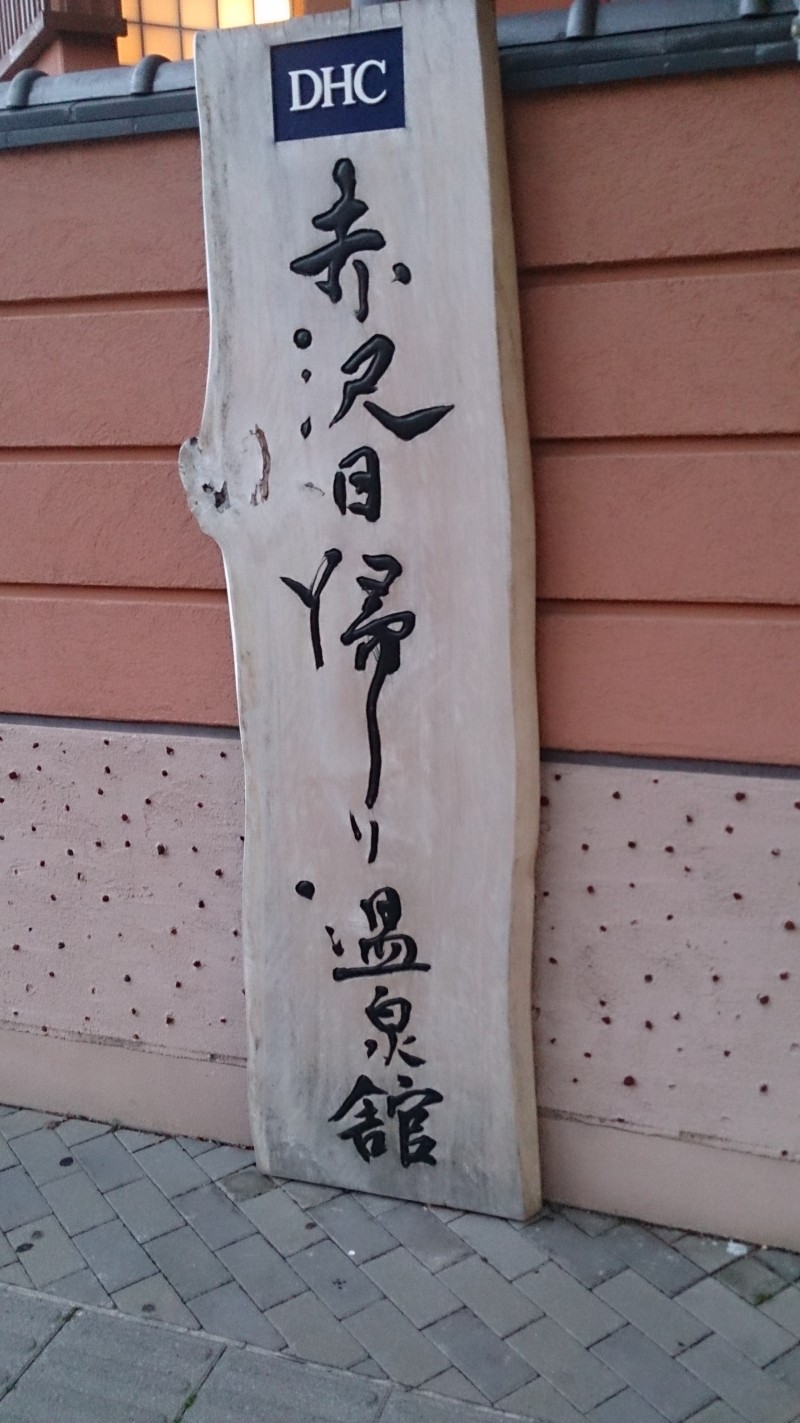 DHC
赤沢日帰り温泉館